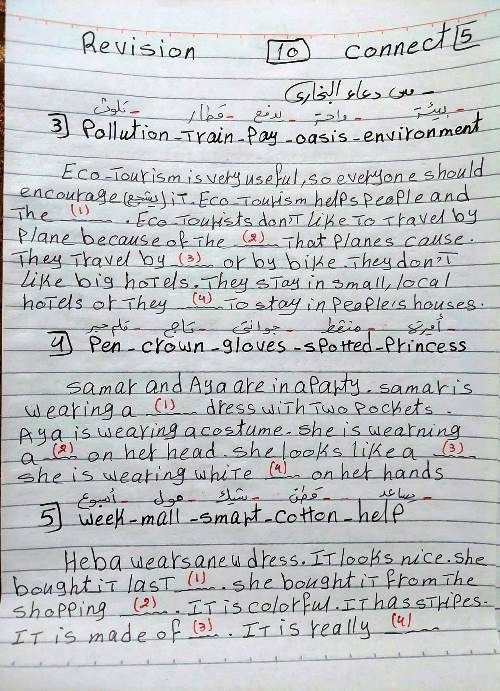 Revision 10 connect 5
مس دعاء البخاري
بيئة - واحة - يدفع - قطار - تلوث
3 Pollution-Train-Pay-oasis-environment
Eco-Tourism is very useful, so everyone should
encourage (يشجع) iT. Eco-Tourism helps people and
The (1) . Eco-Tourists don't like To Travel by
Plane because of The (2) That planes cause.
They Travel by (3) or by bike. They don't
like big hotels. They stay in small, local
hotels or They (4) To stay in people's houses.
أميرة - منقط - جوانتي - تاج - قلم حبر
4 Pen-crown-gloves-spotted-Princess
samar and Aya are in a Party. samar is
wearing a (1) dress with Two pockets.
Aya is wearing a costume. she is wearning
a (2) on her head. she looks like a (3)
she is wearing white (4) on her hands
يساعد - قطن - شيك - مول - أسبوع
5 week-mall-smart-cotton-help
Heba wears a new dress. IT looks nice. she
bought iT last (1) . she bought iT from The
shopping (2) . IT is colorful. IT has sTripes.
IT is made of (3) . IT is really (4)